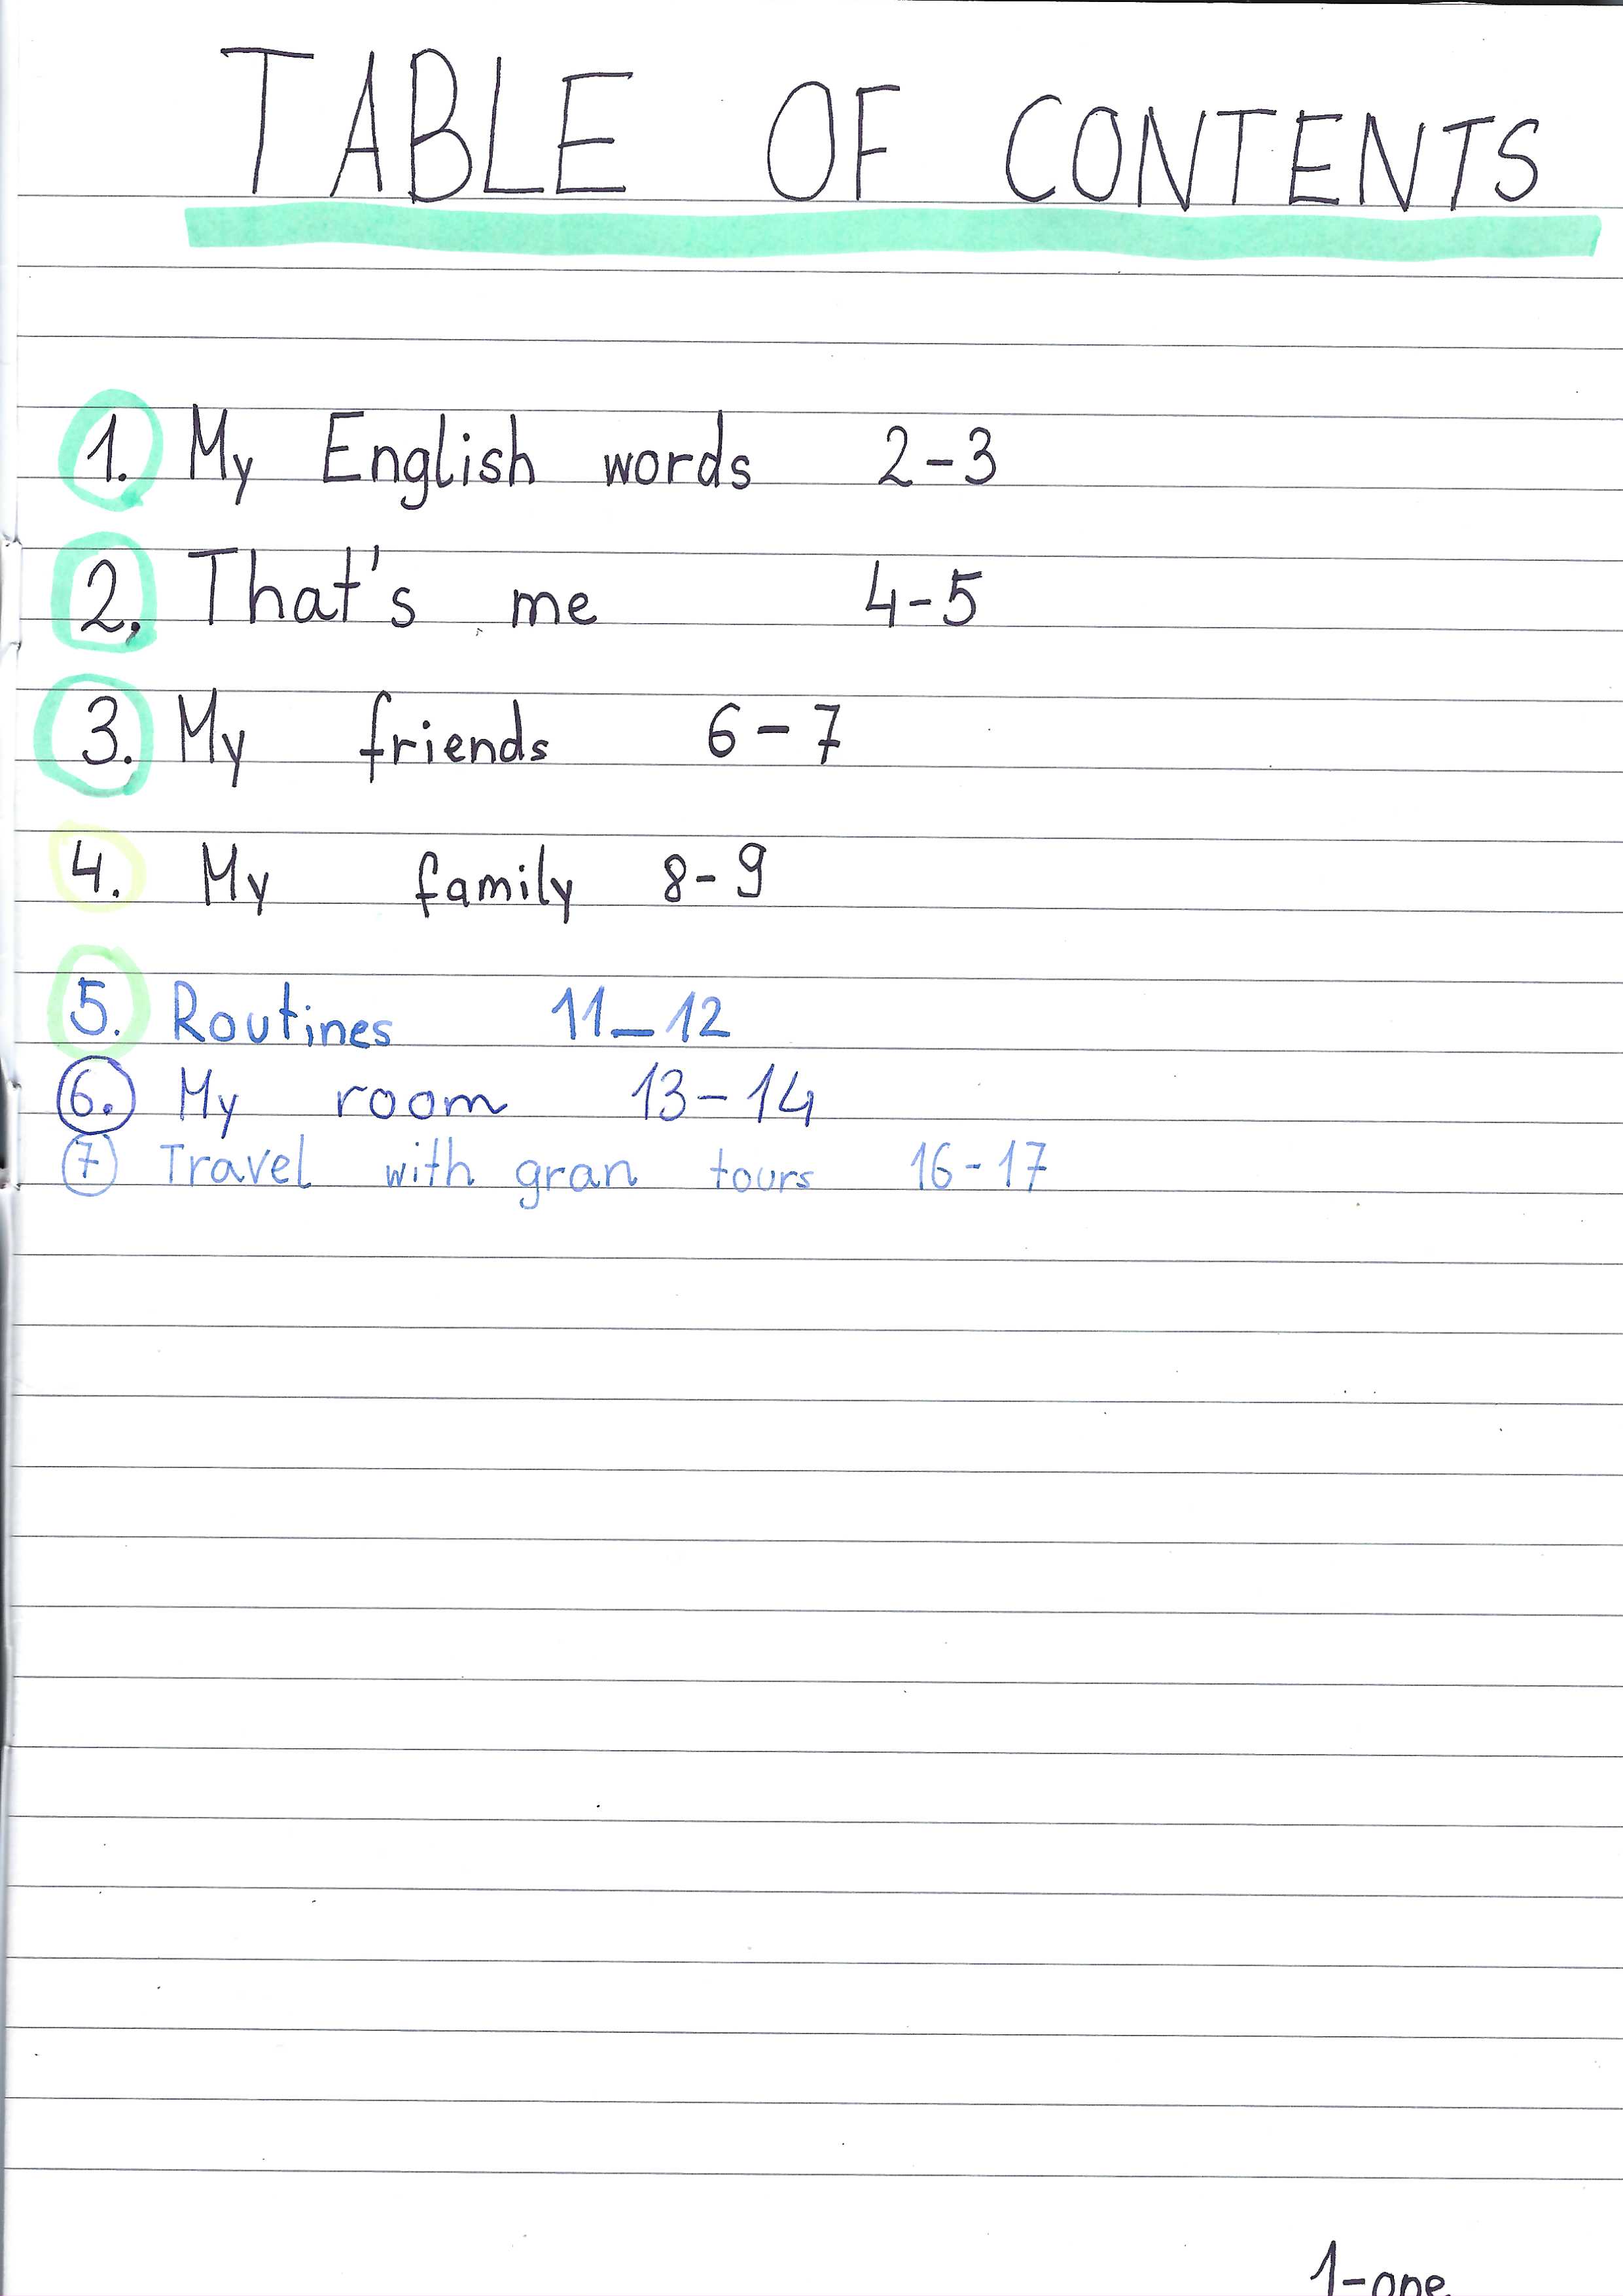 TABLE OF CONTENTS
1. My English words 2-3
2. That's me 4-5
3. My friends 6-7
4. My family 8-9
5. Routines 11-12
6. My room 13-14
7 Travel with gran tours 16-17
1-one